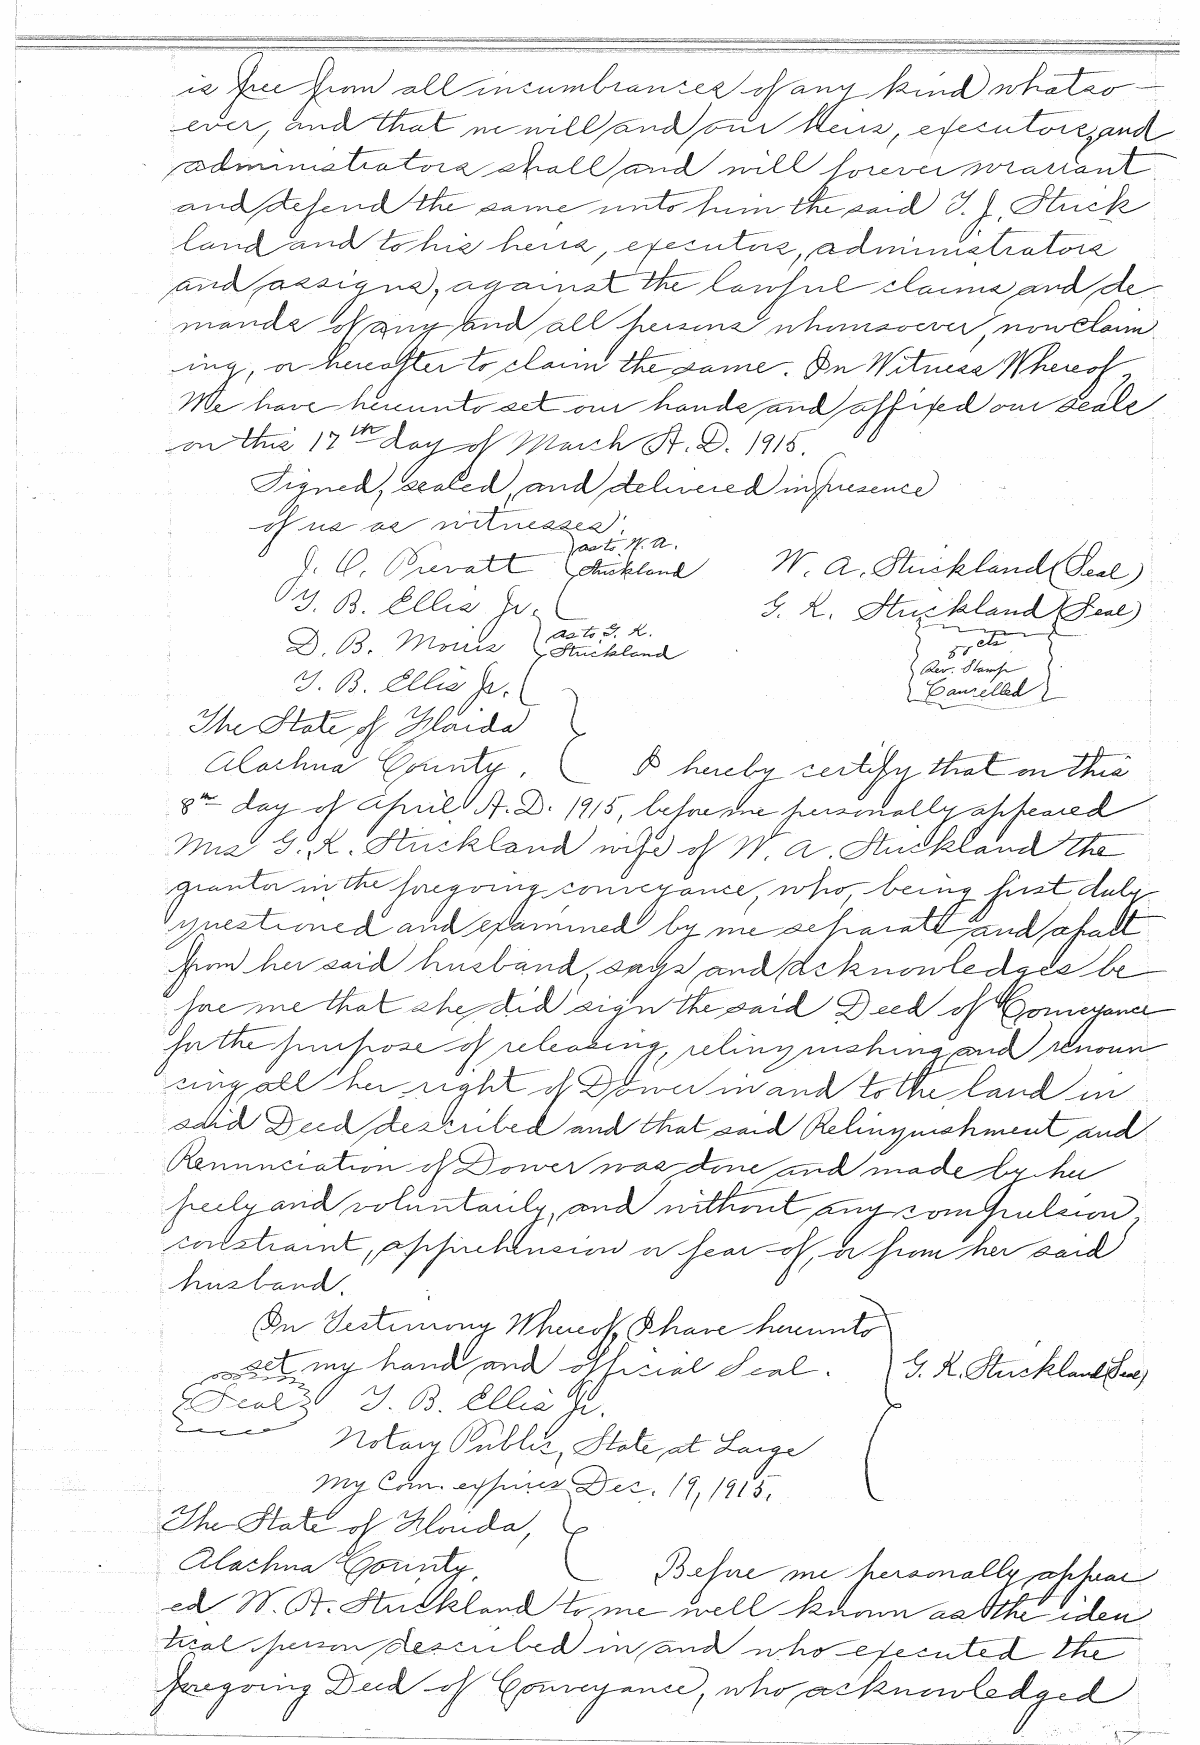 is free from all incumbrances of any kind whatso-
ever, and that we will and our heirs, executors, and
administrators shall and will forever warrant
and defend the same unto him the said T. J. Strick
land and to his heirs, executors, administrators
and assigns, against the lawful claims and de
mands of any and all persons whomsoever, now claim
ing, or hereafter to claim the same. In Witness Whereof,
We have hereunto set our hands and affixed our seals
on this 17th day of March A. D. 1915.
Signed, sealed, and delivered in presence
of us as witnesses:
J. C. Prevatt } as to W. A. Strickland W. A. Strickland (Seal)
T. B. Ellis Jr. G. K. Strickland (Seal)
D. B. Morris } as to G. K. Strickland 50 cts
Rev. Stamp
T. B. Ellis Jr. Cancelled
The State of Florida
Alachua County. I hereby certify that on this
8th day of April A. D. 1915, before me personally appeared
Mrs G. K. Strickland wife of W. A. Strickland the
grantor in the foregoing conveyance, who, being first duly
questioned and examined by me separate and apart
from her said husband, says and acknowledges be-
fore me that she did sign the said Deed of Conveyance
for the purpose of releasing, relinquishing and renoun
cing all her right of Dower in and to the land in
said Deed described and that said Relinquishment and
Renunciation of Dower was done and made by her
freely and voluntarily, and without any compulsion,
constraint, apprehension or fear of, or from her said
husband.
In Testimony Whereof, I have hereunto
set my hand and official Seal. G. K. Strickland (Seal)
Seal T. B. Ellis Jr.
Notary Public, State at Large
My Com. expires Dec. 19, 1915.
The State of Florida,
Alachua County. Before me personally appear
ed W. A. Strickland to me well known as the iden
tical person described in and who executed the
foregoing Deed of Conveyance, who acknowledged